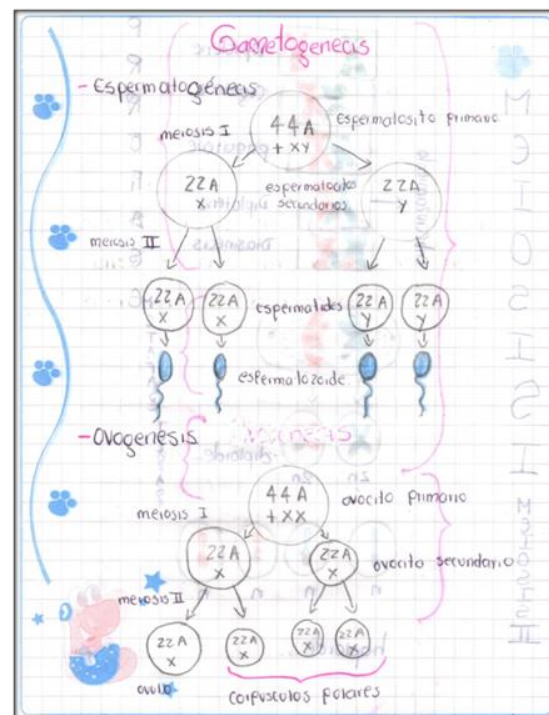 Gametogenecis
- Espermatogénecis
espermatosito primario
meiosis I
44A
+ XY
22A
X
espermatocitos
secundarios
22A
Y
meiosis II
22A
X
22A
X
espermatides
22A
Y
22A
Y
espermatozoide
- Ovogenesis
44A
+ XX
ovocito primario
meiosis I
22A
X
22A
X
ovocito secundario
meiosis II
22A
X
22A
X
22A
X
22A
X
ovulo
corpusculos polares